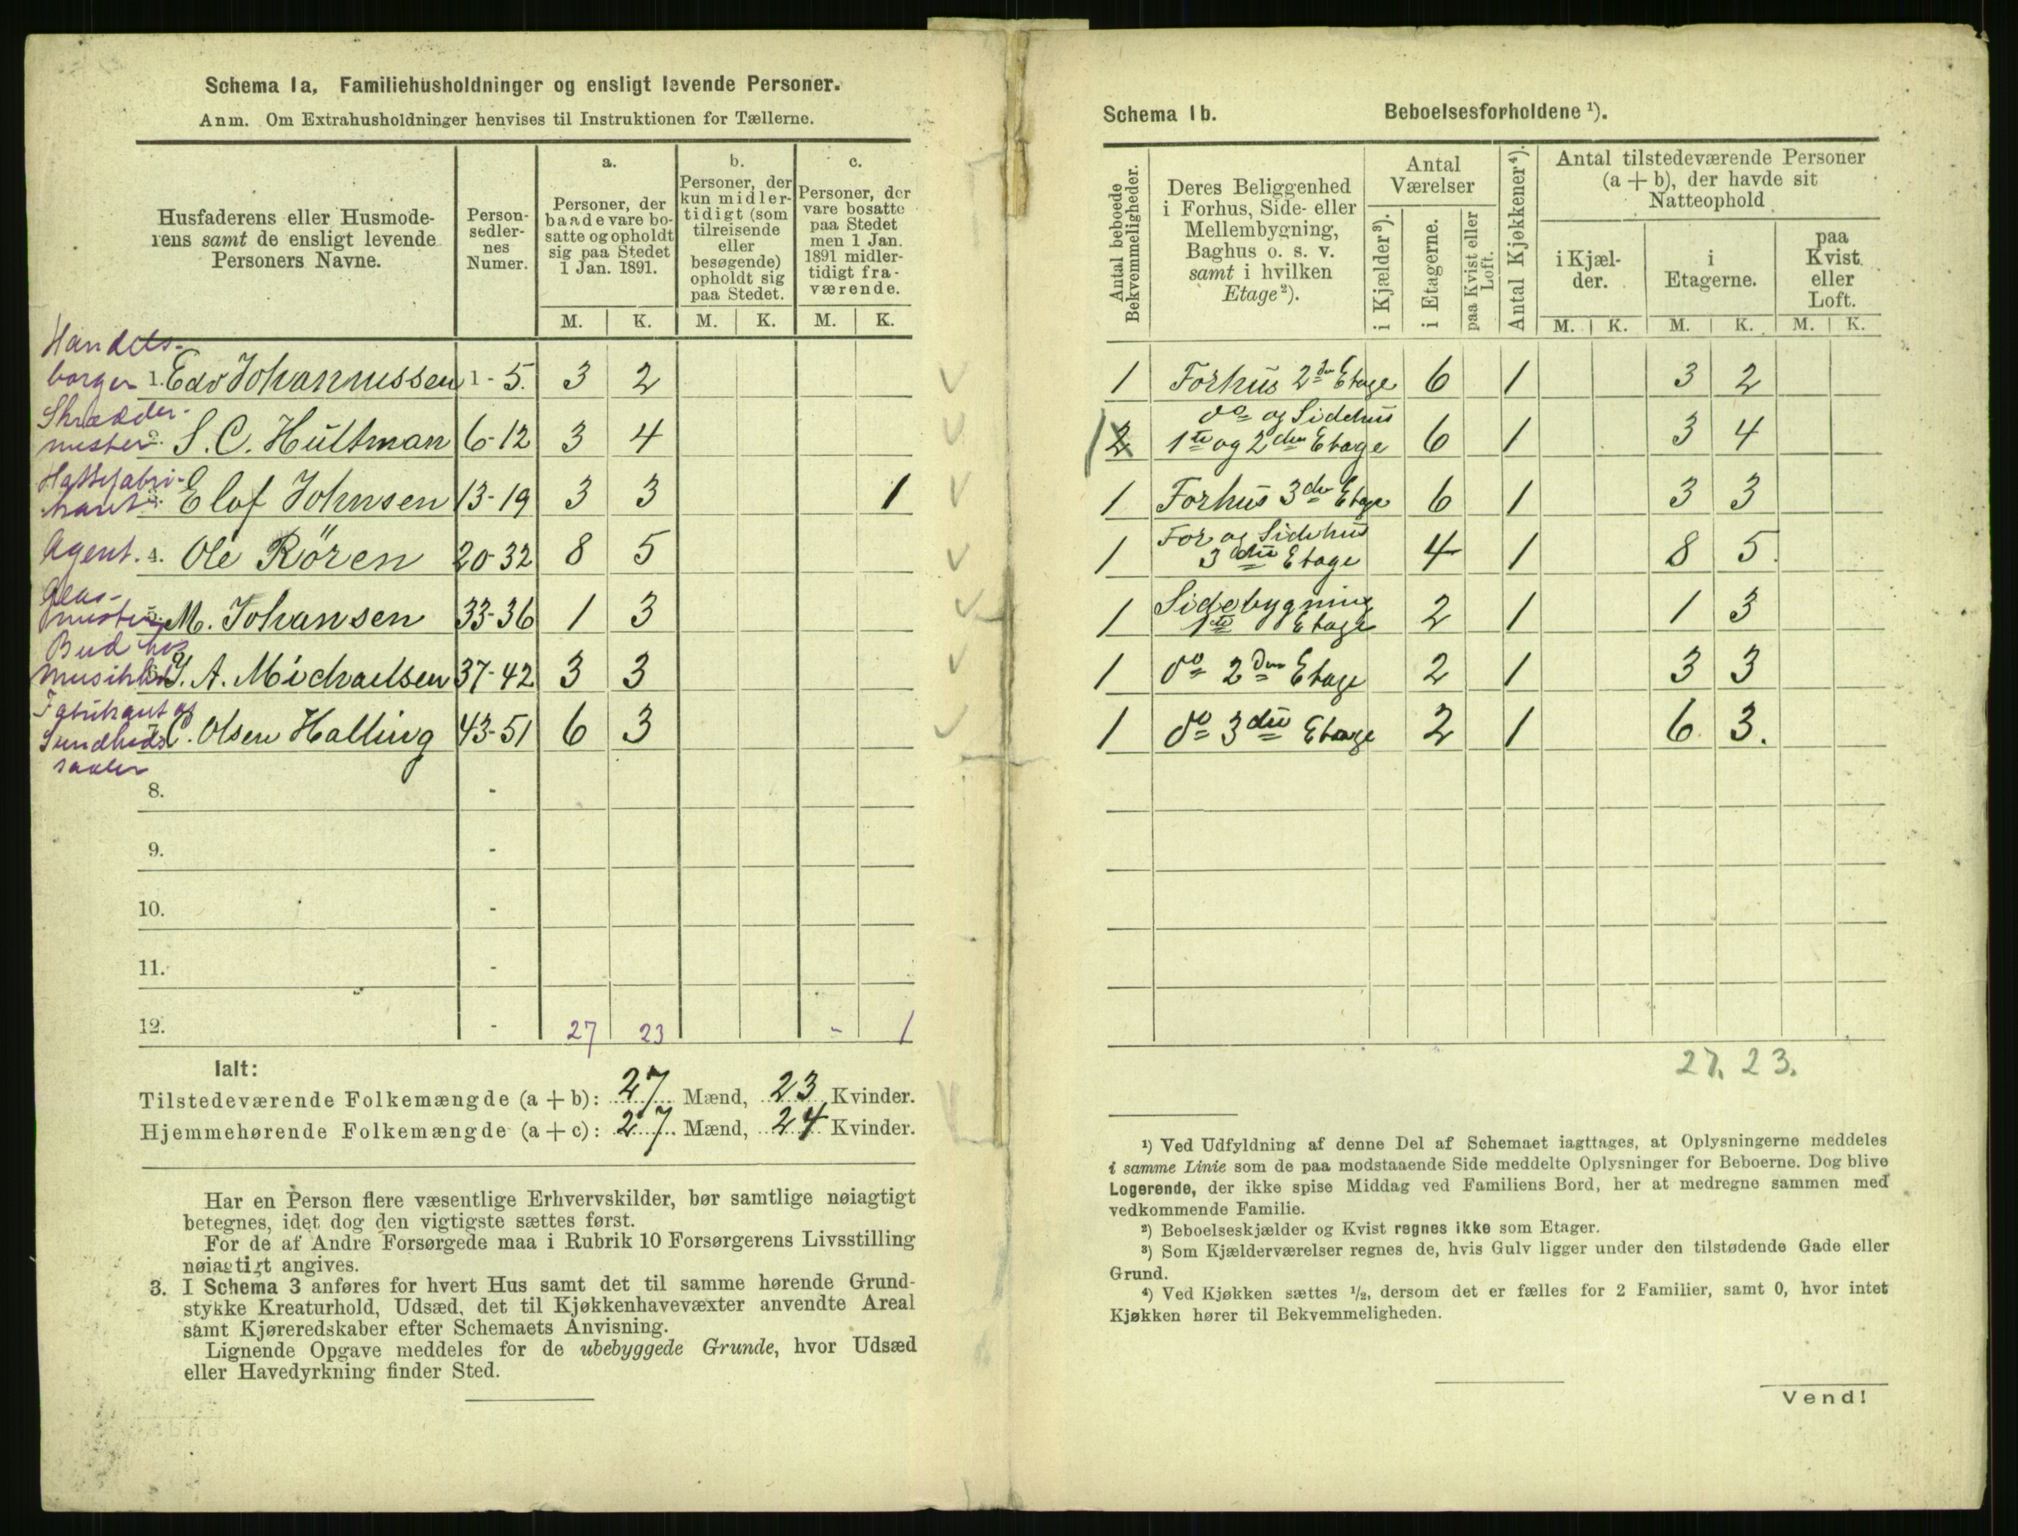 Schema 1a. Familiehusholdninger og ensligt levende Personer.
Anm. Om Extrahusholdninger henvises til Instruktionen for Tællerne.
Husfaderens eller Husmoderens samt de ensligt levende Personers Navne.
Personsedlernes Numer.
a.
Personer, der baade vare bosatte og opholdt sig paa Stedet 1 Jan. 1891.
b.
Personer, der kun midlertidigt (som tilreisende eller besøgende) opholdt sig paa Stedet.
c.
Personer, der vare bosatte paa Stedet men 1 Jan. 1891 midlertidigt fraværende.
M. K. M. K. M. K.
Handelsborger 1. Edv Johannussen 1 - 5. 3 2
Skræddermester 2. S. C. Hultman 6-12 3 4
Hattefabrikant 3. Elof Johnsen 13-19 3 3 1
Agent. 4. Ole Rören 20-32 8 5
M. Johansen 33-36 1 3
Bud hos
A. Michaelsen 37-42 3 3
Fabrikant af
Sundheds C. Olsen Halling 43-51 6 3
8. -
9. -
10. -
11. -
12. - 27 23 - 1
Ialt:
Tilstedeværende Folkemængde (a + b): 27 Mænd, 23 Kvinder.
Hjemmehørende Folkemængde (a + c): 27 Mænd, 24 Kvinder.
Har en Person flere væsentlige Erhvervskilder, bør samtlige nøiagtigt
betegnes, idet dog den vigtigste sættes først.
For de af Andre Forsørgede maa i Rubrik 10 Forsørgerens Livsstilling
nøiagtigt angives.
3. I Schema 3 anføres for hvert Hus samt det til samme hørende Grund-
stykke Kreaturhold, Udsæd, det til Kjøkkenhavevæxter anvendte Areal
samt Kjøreredskaber efter Schemaets Anvisning.
Lignende Opgave meddeles for de ubebyggede Grunde, hvor Udsæd
eller Havedyrkning finder Sted.
Schema 1b. Beboelsesforholdene ¹).
Antal beboede Bekvemmeligheder.
Deres Beliggenhed i Forhus, Side- eller Mellembygning, Baghus o. s. v. samt i hvilken Etage ²).
Antal Værelser
i Kjælder ³).
i Etagerne.
paa Kvist eller Loft.
Antal Kjøkkener ⁴).
Antal tilstedeværende Personer (a + b), der havde sit Natteophold
i Kjælder.
i Etagerne.
paa Kvist eller Loft.
M. K. M. K. M. K.
1 Forhus 2den Etage 6 1 3 2
do og Sidehus
1 2 1te og 2den Etage 6 1 3 4
1 Forhus 3die Etage 6 1 3 3
For og Sidehus
1 3die Etage 4 1 8 5.
Sidebygning
1 1te Etage 2 1 1 3
1 do 2den Etage 2 1 3 3
1 do 3die Etage 2 1 6 3.
27. 23.
¹) Ved Udfyldning af denne Del af Schemaet iagttages, at Oplysningerne meddeles
i samme Linie som de paa modstaaende Side meddelte Oplysninger for Beboerne. Dog blive
Logerende, der ikke spise Middag ved Familiens Bord, her at medregne sammen med
vedkommende Familie.
²) Beboelseskjælder og Kvist regnes ikke som Etager.
³) Som Kjælderværelser regnes de, hvis Gulv ligger under den tilstødende Gade eller
Grund.
⁴) Ved Kjøkken sættes ½, dersom det er fælles for 2 Familier, samt 0, hvor intet
Kjøkken hører til Bekvemmeligheden.
Vend!